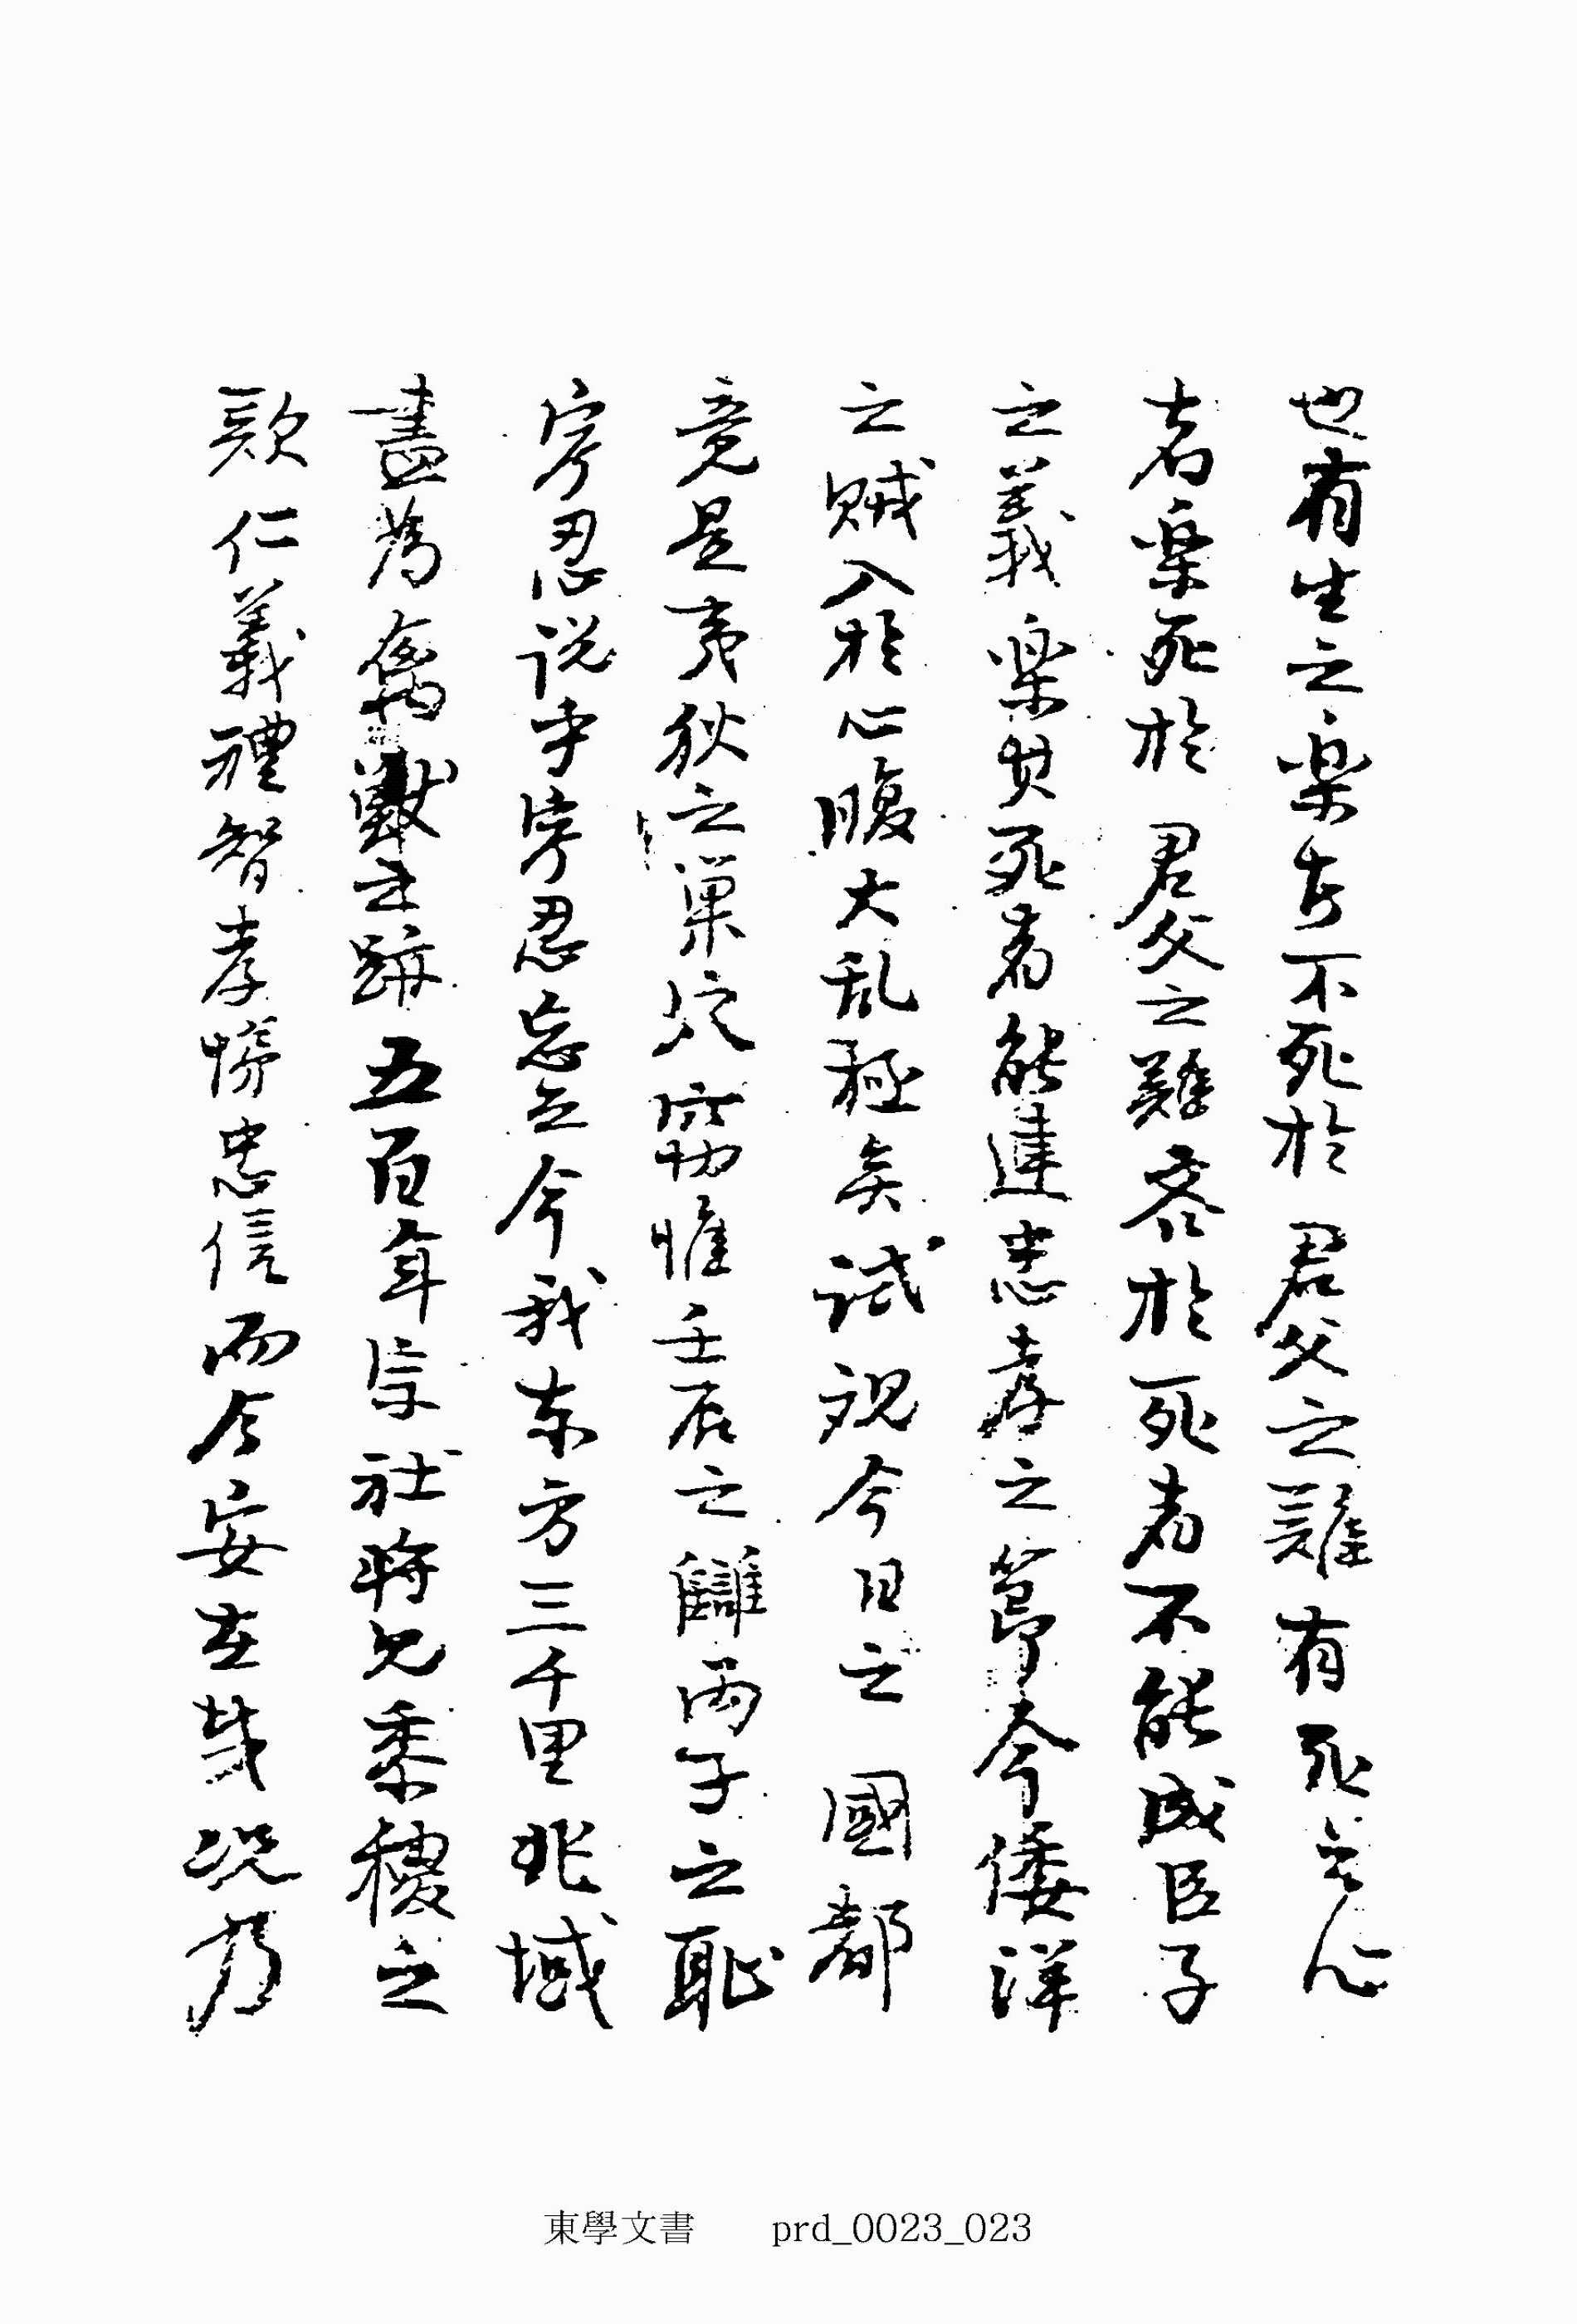 也有生之樂者不死於 君父之難有死之心
者樂死於 君父之難吝於死者不能成臣子
之義樂其死者能達忠孝之節今倭洋
之賊入於心腹大乱極矣試观今日之 國都
竟是夷狄之巢穴窃惟壬辰之讎丙子之恥
寧忍說乎寧忍忘之今我东方三千里兆域
盡为禽獸之跡五百年宗社將見黍稷之
歎仁義禮智孝悌忠信而今安在哉况乃
東學文書 prd_0023_023